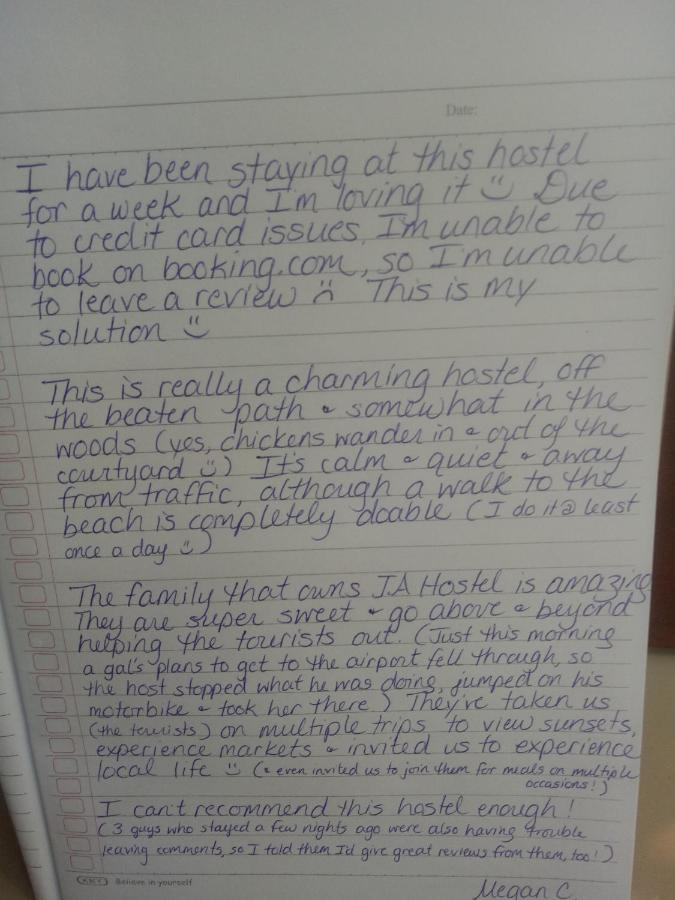 Date:
I have been staying at this hostel
for a week and I'm loving it :)  Due
to credit card issues, I'm unable to
book on booking.com, so I'm unable
to leave a review :(  This is my
solution :)
This is really a charming hostel, off
the beaten path & somewhat in the
woods (yes, chickens wander in & out of the
courtyard :)) It's calm & quiet & away
from traffic, although a walk to the
beach is completely doable (I do it @ least
once a day :))
The family that owns JA Hostel is amazing
They are super sweet & go above & beyond
helping the tourists out. (Just this morning
a gal's plans to get to the airport fell through, so
the host stopped what he was doing, jumped on his
motorbike & took her there.) They've taken us
(the tourists) on multiple trips to view sunsets,
experience markets & invited us to experience
local life :) (& even invited us to join them for meals on multiple
occasions!)
I can't recommend this hostel enough!
(3 guys who stayed a few nights ago were also having trouble
leaving comments, so I told them I'd give great reviews from them, too!)
KKY Believe in yourself
Megan C.